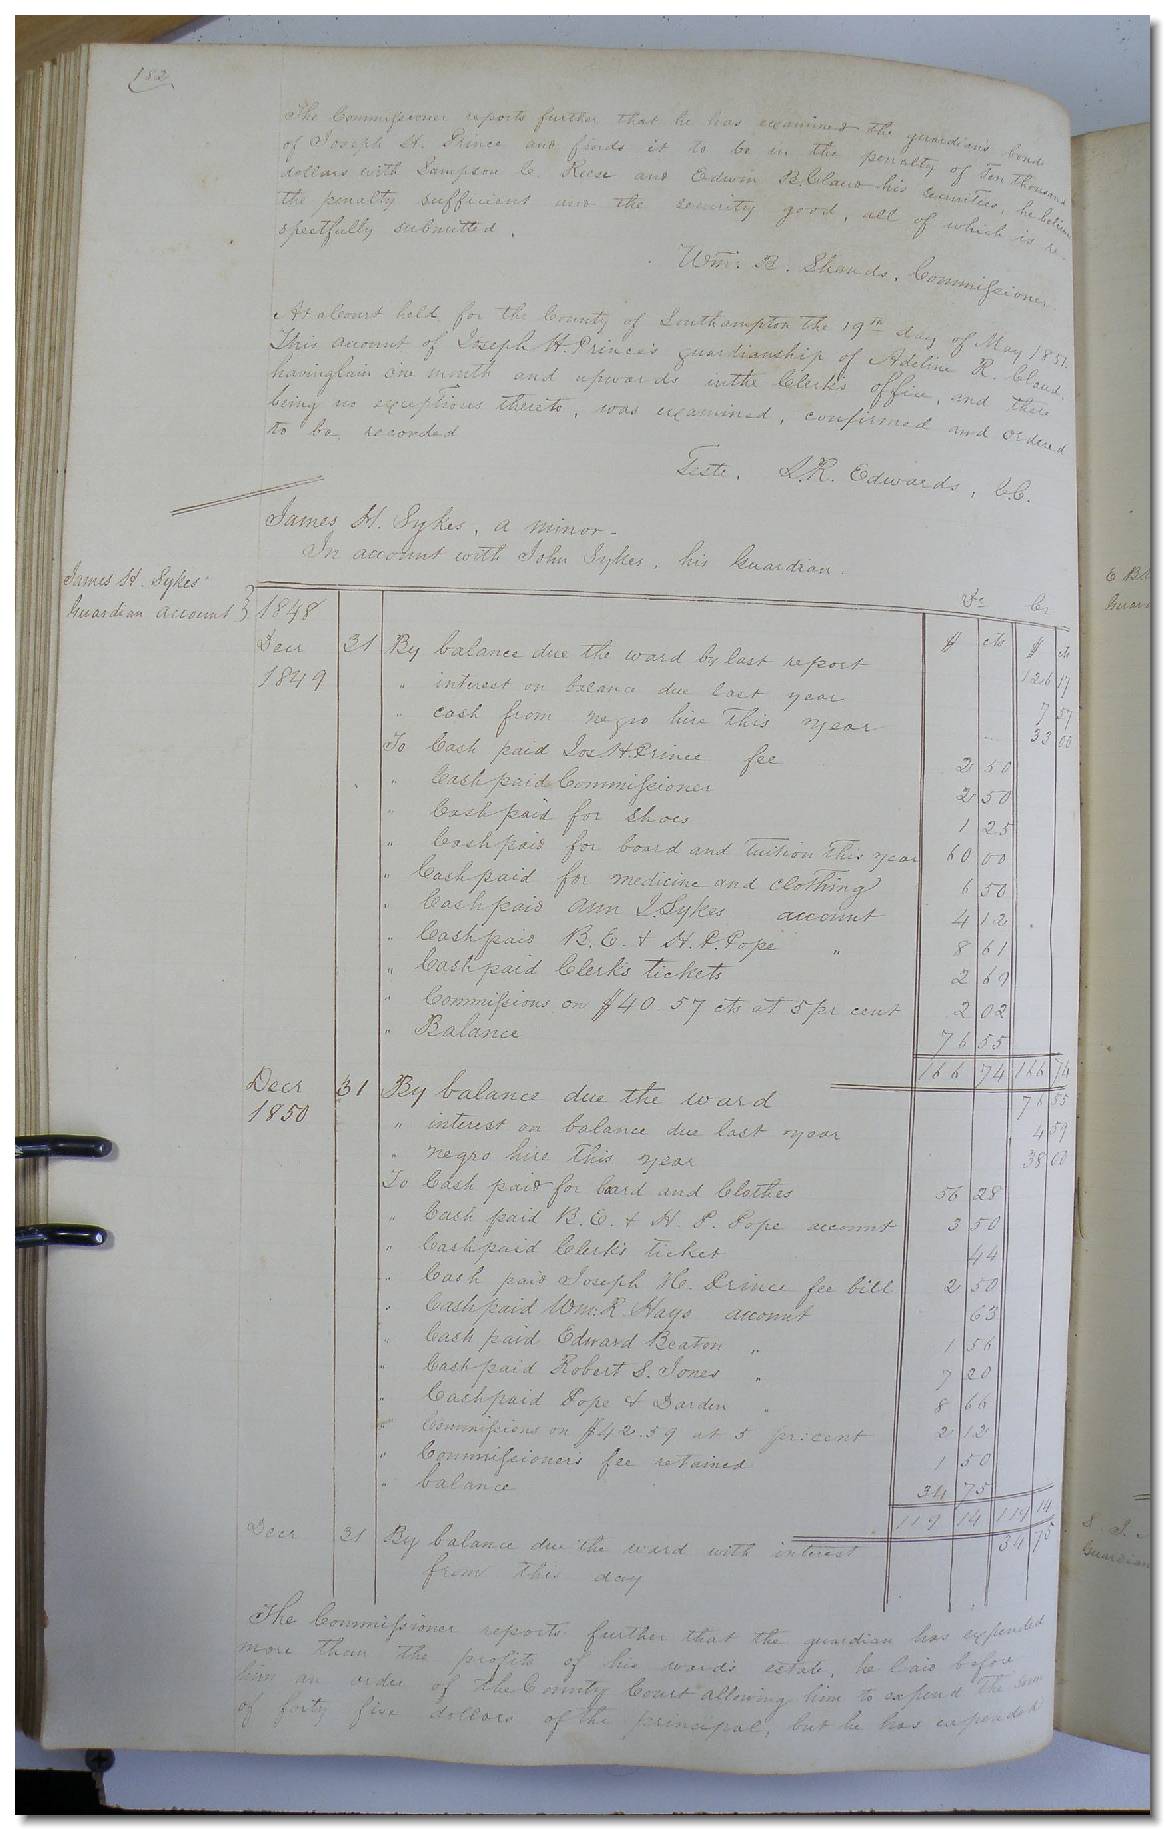 182
The Commissioner reports further that he has examined the guardians bond
of Joseph H. Prince and finds it to be in the penalty of Ten thousand
dollars with Sampson C. Reese and Edwin B. Claud his securities, he believes
the penalty sufficient and the security good, all of which is re-
spectfully submitted.
Wm. B. Shands, Commissioner
At a Court held for the County of Southampton the 19th day of May 1851.
This account of Joseph H. Prince's guardianship of Adeline R. Claud,
having lain one month and upwards in the Clerk's office, and there
being no exceptions thereto, was examined, confirmed and ordered
to be recorded
Teste, L.R. Edwards, C.C.
James H. Sykes, a minor-
In account with John Sykes, his Guardian.
James H. Sykes
Guardian account }
Dr Cr
1848 $ cts $ cts
Decr 31 By balance due the ward by last report 126 17
1849 " interest on balance due last year 7 57
" cash from negro hire this year 33 00
To Cash paid Jos. H Prince fee 2 50
" Cash paid Commissioner 2 50
" Cash paid for shoes 1 25
" Cash paid for board and tuition this year 60 00
" Cash paid for medicine and clothing 6 50
" Cash paid Ann L. Sykes account 4 12
" Cash paid B. E. & H. P. Pope " 8 61
" Cash paid Clerk's tickets 2 69
" Commissions on $40 57 cts at 5 pr cent 2 02
" Balance 76 55
166 74 166 74
Decr 31 By balance due the ward 76 55
1850 " interest on balance due last year 4 59
" negro hire this year 38 00
To Cash paid for board and Clothes 56 28
" Cash paid B. E. & H. P. Pope account 3 50
" Cash paid Clerk's ticket 44
" Cash paid Joseph H. Prince fee bill 2 50
" Cash paid Wm. R. Hays account 63
" Cash paid Edward Beaton " 1 56
" Cash paid Robert S. Jones " 7 20
" Cash paid Pope & Darden " 8 66
" Commissions on $42.59 at 5 pr: cent 2 12
" Commissioner's fee retained 1 50
" balance 34 75
119 14 119 14
Decr 31 By balance due the ward with interest 34 75
from this day
The Commissioner reports further that the guardian has expended
more than the profits of his ward's estate, he laid before
him an order of the County Court allowing him to expend the sum
of forty five dollars of the principal, but he has expended